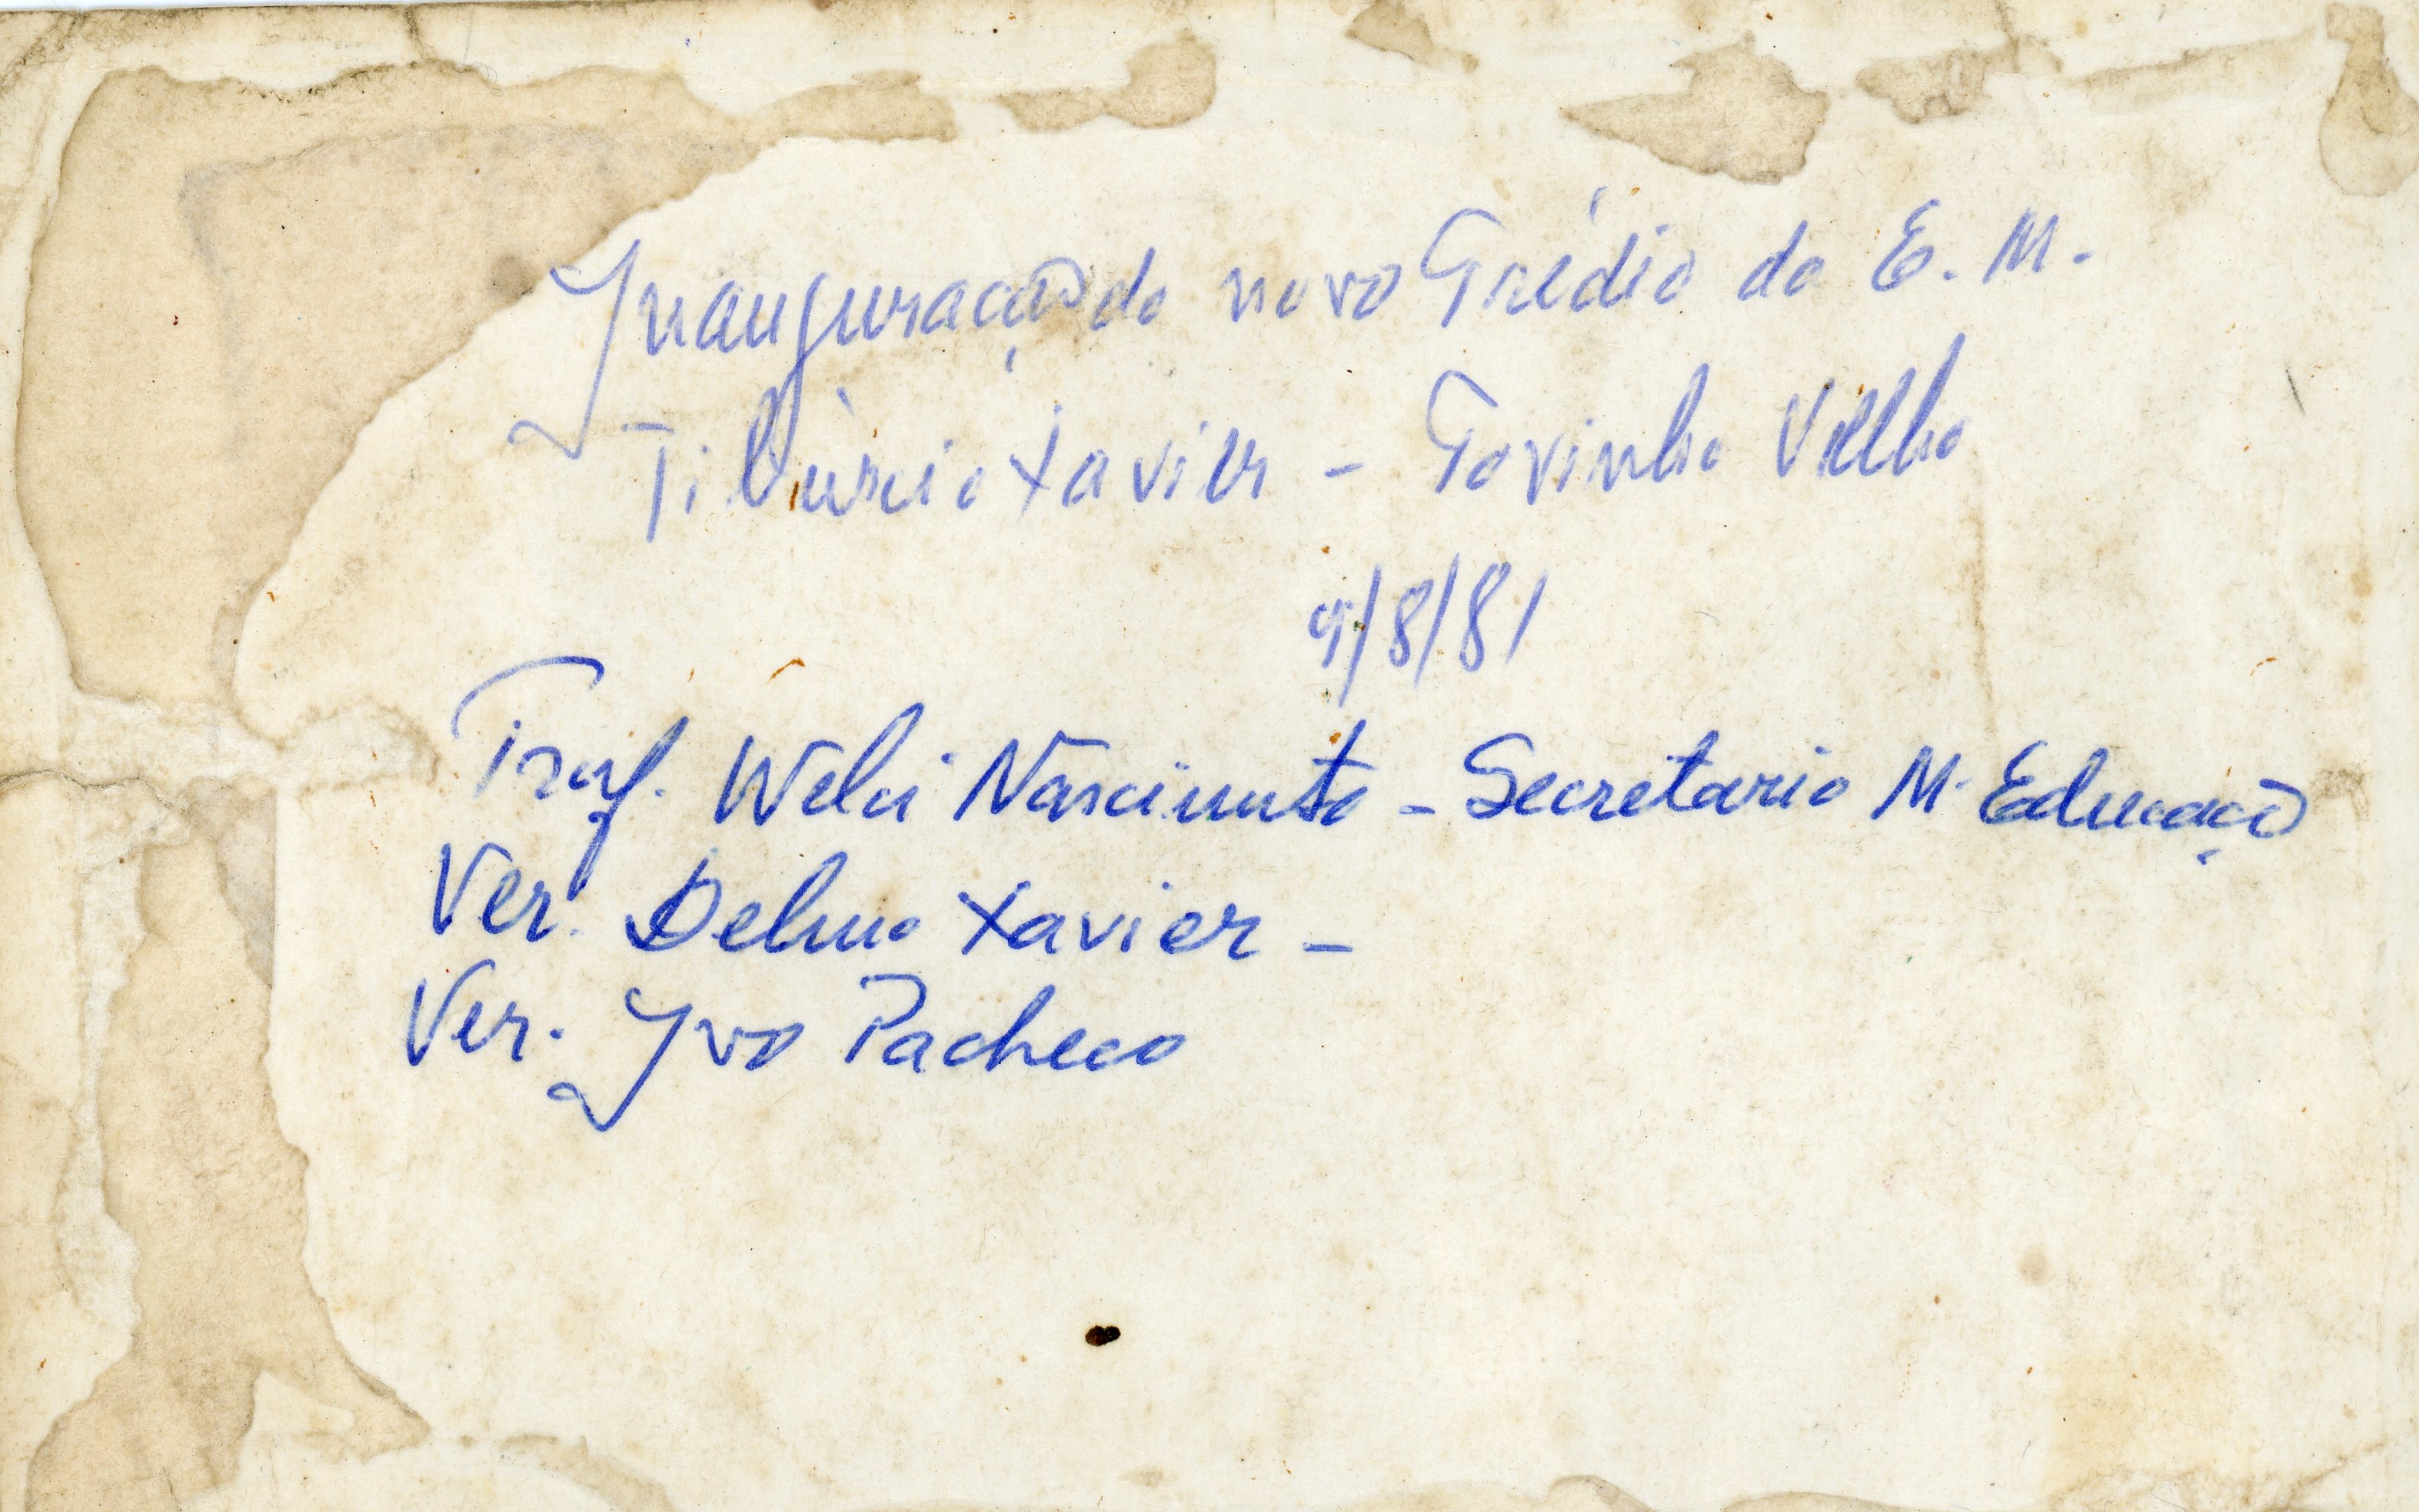 Inauguração do novo Prédio da E. M.
Tibúrcio Xavier - Povinho Velho
9/8/81
Prof. Welci Nascimento - Secretario M. Educação
Ver. Delmo Xavier -
Ver. Yvo Pacheco